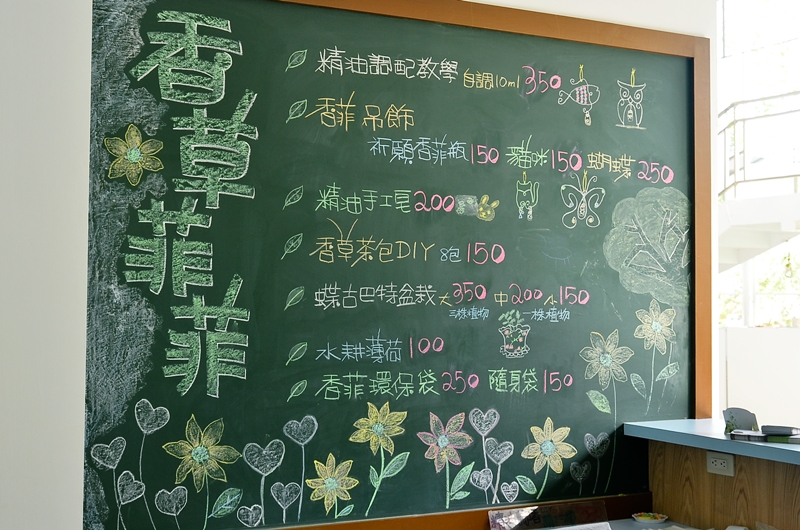 香草菲菲
精油調配教學 自調10ml 350
香菲吊飾
祈願香菲瓶150 貓咪150 蝴蝶250
精油手工皂200
香草茶包DIY 8包 150
蝶古巴特盆栽 大350 中200 小150
三株植物 一株植物
水耕薄荷100
香菲環保袋250 隨身袋150